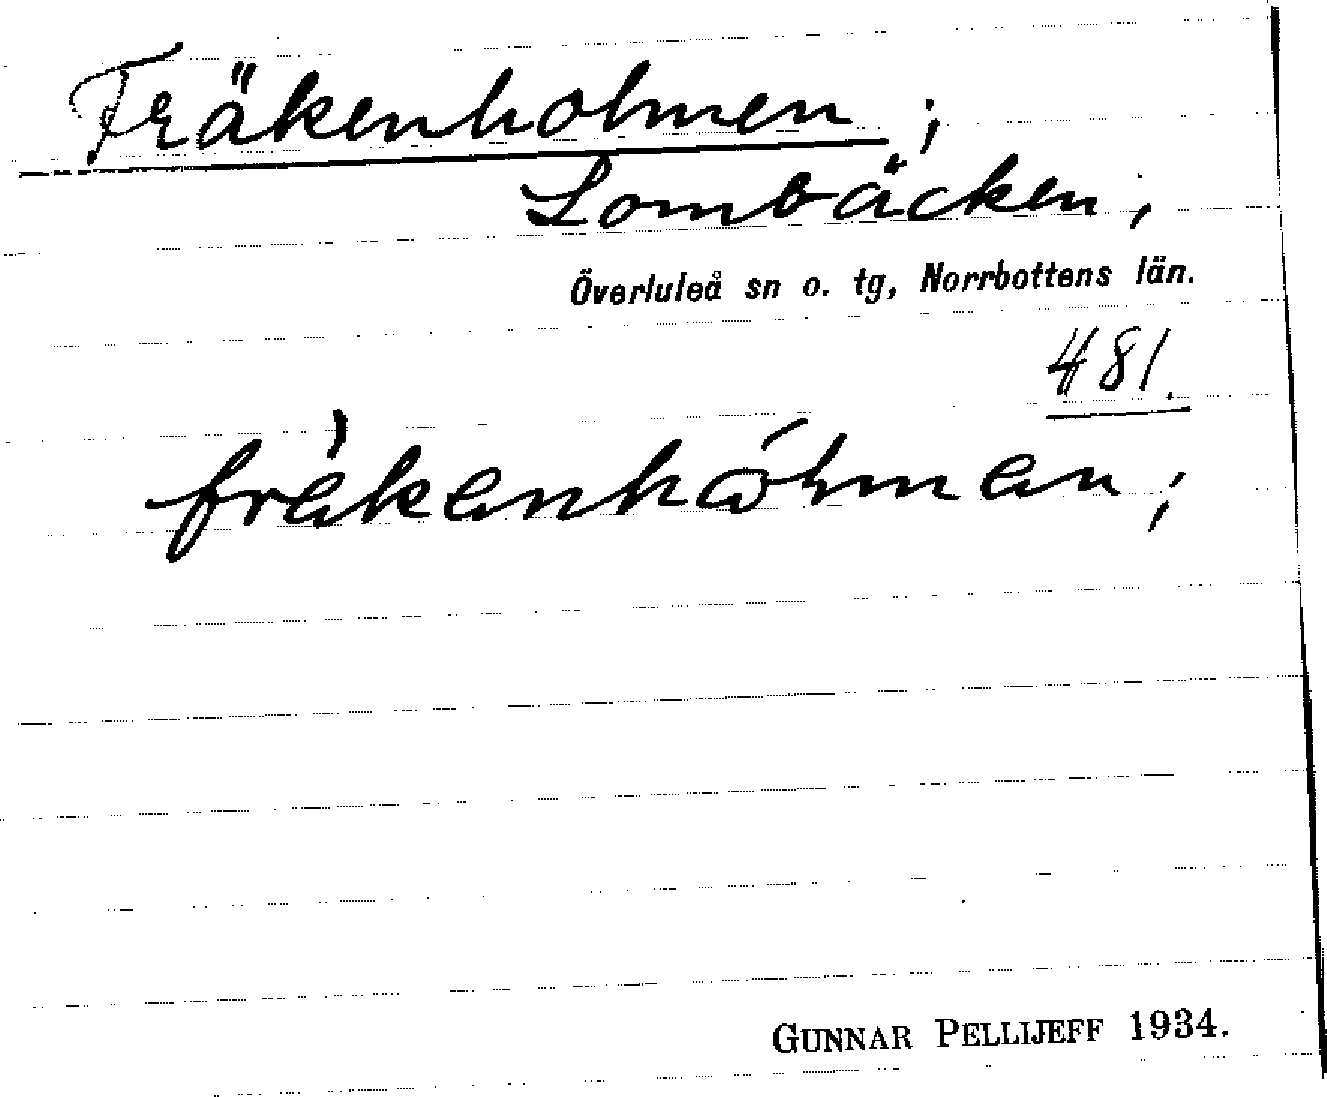 Fräkenholmen;
Lombäcken;
Överluleå sn o. tg, Norrbottens län.
481.
GUNNAR PELLIJEFF 1934.